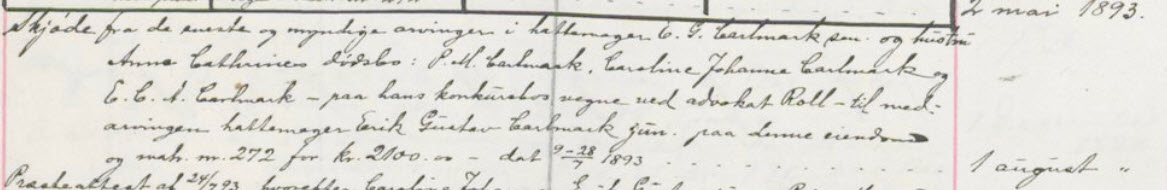 2 mai 1893.
Skjøde fra de eneste og myndige arvinger i hattemager E. G. Carlmark sen. og hustru
Anne Cathrines dødsbo: P. M. Carlmark, Caroline Johanne Carlmark og
E. C. A. Carlmark – paa hans konkursbos vegne ved advokat Roll – til med-
arvingen hattemager Erik Gustav Carlmark jun. paa denne eiendom
og matr. nr. 272 for kr. 2100.00 – dat 9–28/7 1893 . . . . . . . . 1 august "
Præsteattest af 24/7 93, hvorefter Caroline